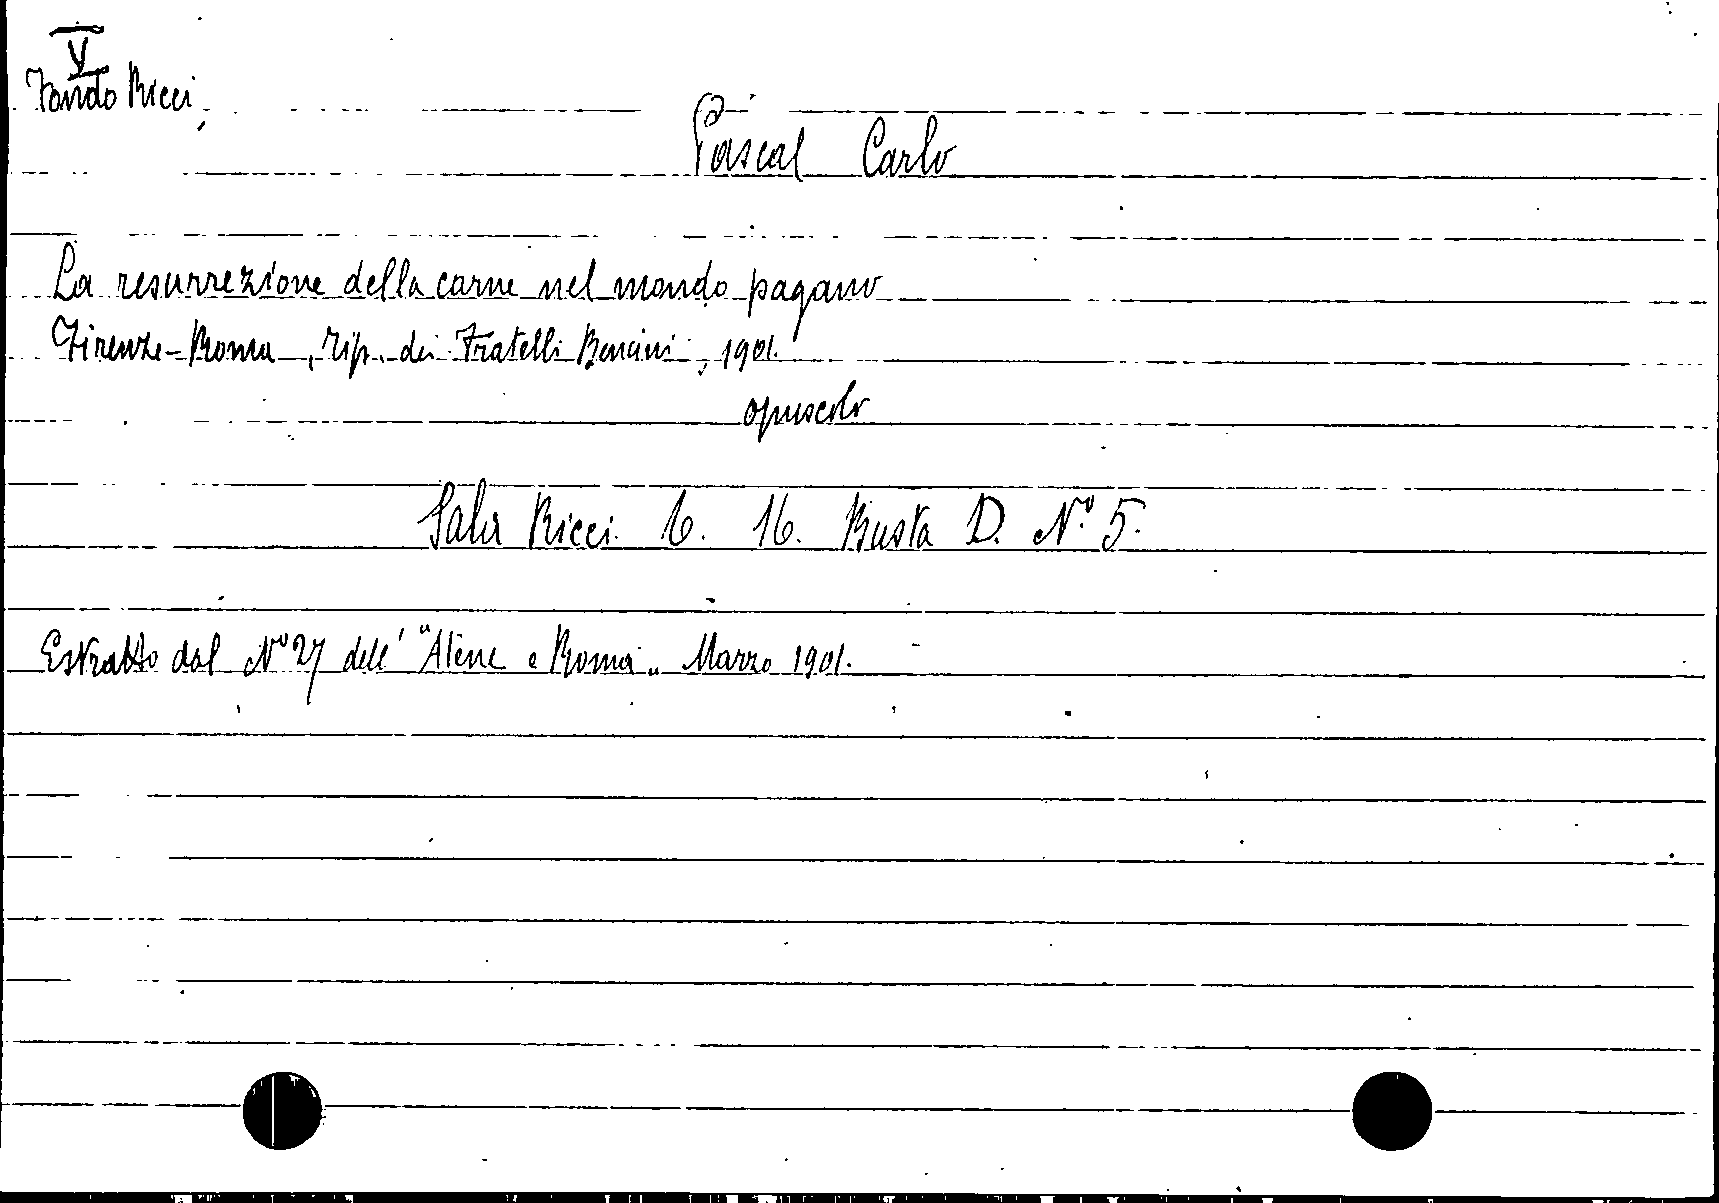 V
Fondo Ricci
Pascal Carlo
La resurrezione della carne nel mondo pagano
Firenze-Roma, Tip. dei Fratelli Bencini, 1901.
opuscolo
Sala Ricci. 6. 16. Busta D. Nº 5.
Estratto dal Nº 27 dell' "Atene e Roma" Marzo 1901.